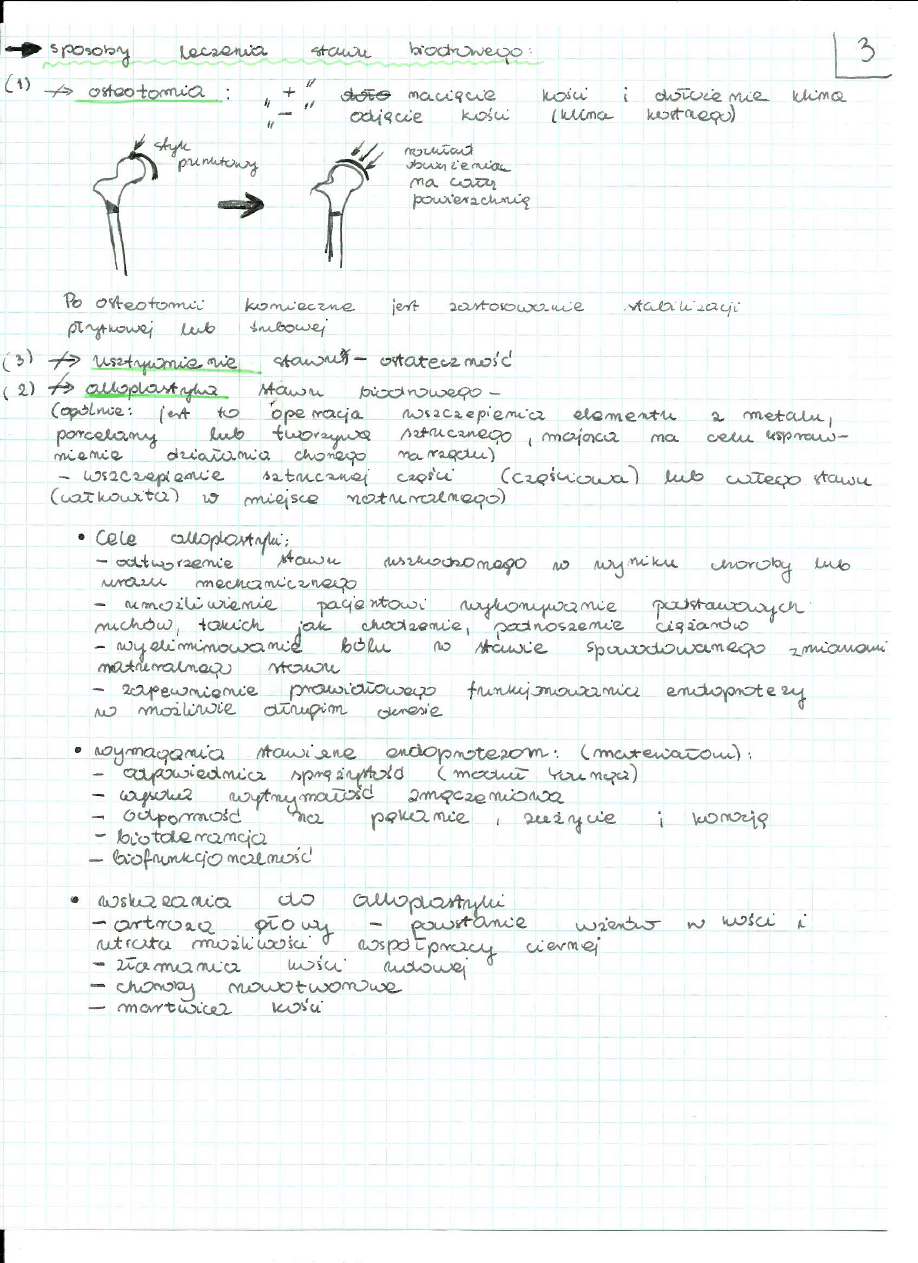 sposoby leczenia stawu biodrowego:
3
(1) osteotomia : „ + " nacięcie kości i dołożenie klina
„ – " odjęcie kości (klina kostnego)
styk
punktowy
rozkład
obciążenia
na całą
powierzchnię
Po osteotomii konieczne jest zastosowanie stabilizacji
płytkowej lub śrubowej
(3) usztywnienie stawu – ostateczność
(2) alloplastyka stawu biodrowego –
(ogólnie: jest to operacja wszczepienia elementu z metalu,
porcelany lub tworzywa sztucznego, mająca na celu uspraw–
nienie działania chorego narządu)
– wszczepienie sztucznej części (częściowa) lub całego stawu
(całkowita) w miejsce naturalnego)
• Cele alloplastyki:
– odtworzenie stawu uszkodzonego w wyniku choroby lub
urazu mechanicznego
– umożliwienie pacjentowi wykonywanie podstawowych
ruchów, takich jak chodzenie, podnoszenie ciężarów
– wyeliminowanie bólu w stawie spowodowanego zmianami
naturalnego stawu
– zapewnienie prawidłowego funkcjonowania endoprotezy
w możliwie długim okresie
• wymagania stawiane endoprotezom: (materiałom):
– odpowiednia sprężystość (moduł Younga)
– wysoka wytrzymałość zmęczeniowa
– odporność na pękanie, zużycie i korozję
– biotolerancja
– biofunkcjonalność
• wskazania do alloplastyki
– artroza głowy – powstanie wżerów w kości i
utrata możliwości współpracy ciernej
– złamania kości udowej
– choroby nowotworowe
– martwica kości